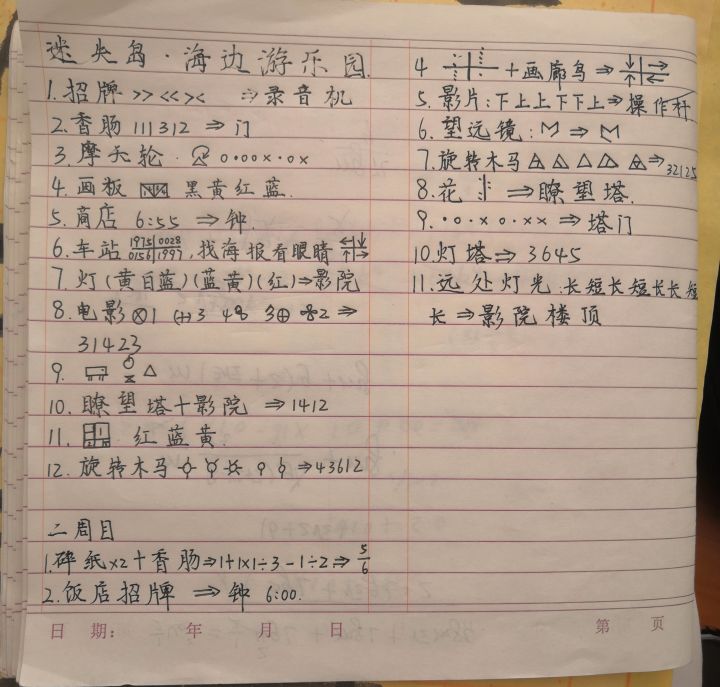 迷失岛·海边游乐园.
1.招牌 >> << >< ⇒录音机
2.香肠 111312 ⇒ 门
3.摩天轮. o·oo×·o×
4.画板 黑黄红蓝.
5.商店 6:55 ⇒钟.
6.车站 1975|0028 0156|1997, 找海报看眼睛
7.灯(黄白蓝)(蓝黄)(红)⇒影院
8.电影⊗1 3 4 3⊕ 2 ⇒
31423
9. △
10.瞭望塔+影院 ⇒1412
11. 红蓝黄.
12.旋转木马 ⇒43612
二周目
1.碎纸×2+香肠⇒1+1×1÷3-1÷2⇒5/6
2.饭店招牌 ⇒钟 6:00.
4 +画廊鸟⇒
5.影片:下上上下下上⇒操作杆
6.望远镜: ⇒
7.旋转木马 ⇒32125
8.花 ⇒瞭望塔.
9.·o·×o·×× ⇒塔门
10.灯塔⇒3645
11.远处灯光:长短长短长长短
长⇒影院楼顶
日 期: 年 月 日 第 页